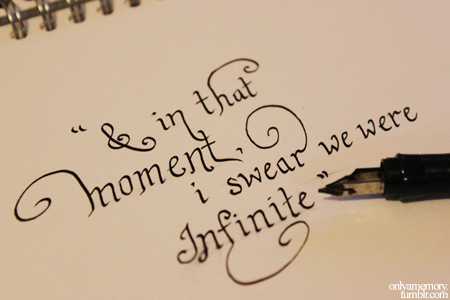 “ & in that
moment,
i swear we were
Infinite”
onlyamemory.
tumblr.com